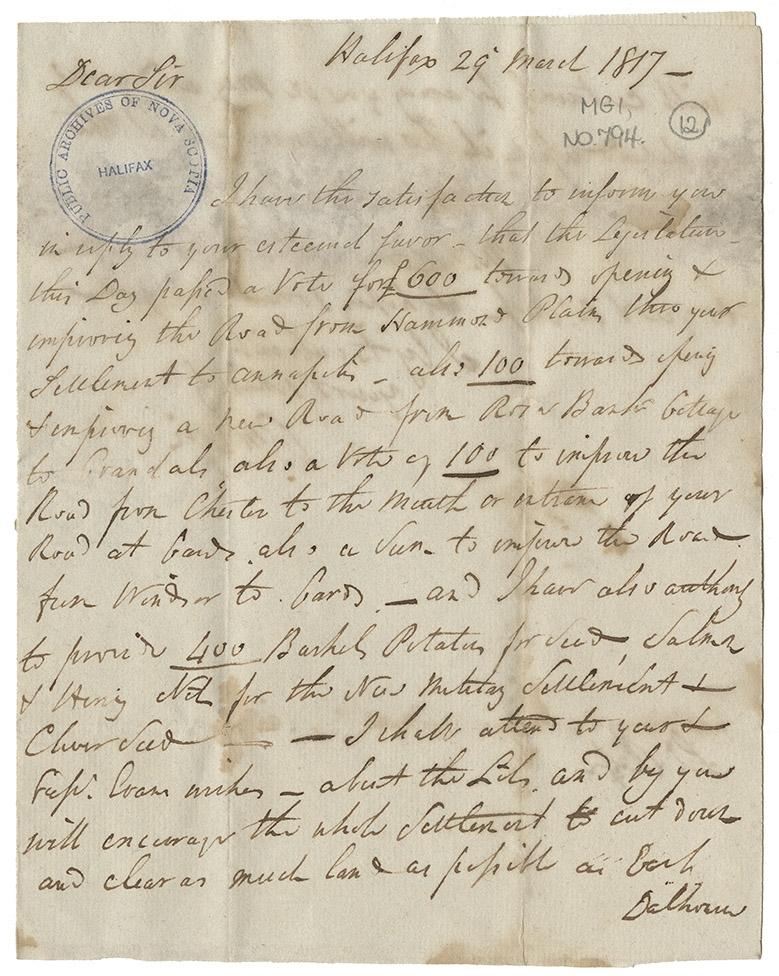 Halifax 29 March 1817 –
Dear Sir
MG1,
NO. 794.
12
PUBLIC ARCHIVES OF NOVA SCOTIA
HALIFAX
I have the satisfaction to inform you
in reply to your esteemed favor – that the Legislature
this Day passed a Vote for £600 towards opening &
improving the Road from Hammond Plains thro your
Settlement to Annapolis – also 100 towards opening
& improving a new Road from Rose Bank Cottage
to Crandals also a Vote of 100 to improve the
Road from Chester to the Mouth or entrance of your
Road at Cards also a Sum to improve the Road
from Windsor to Cards – and I have also authority
to provide 400 Bushels Potatoes for Seed, Salmon
& Herring Nets for the New Military Settlement &
Clover Seed – – I shall attend to yours &
Capt. Evans wishes – about the and by you
will encourage the whole Settlement to cut down
and clear as much land as possible as Earl
Dalhousie